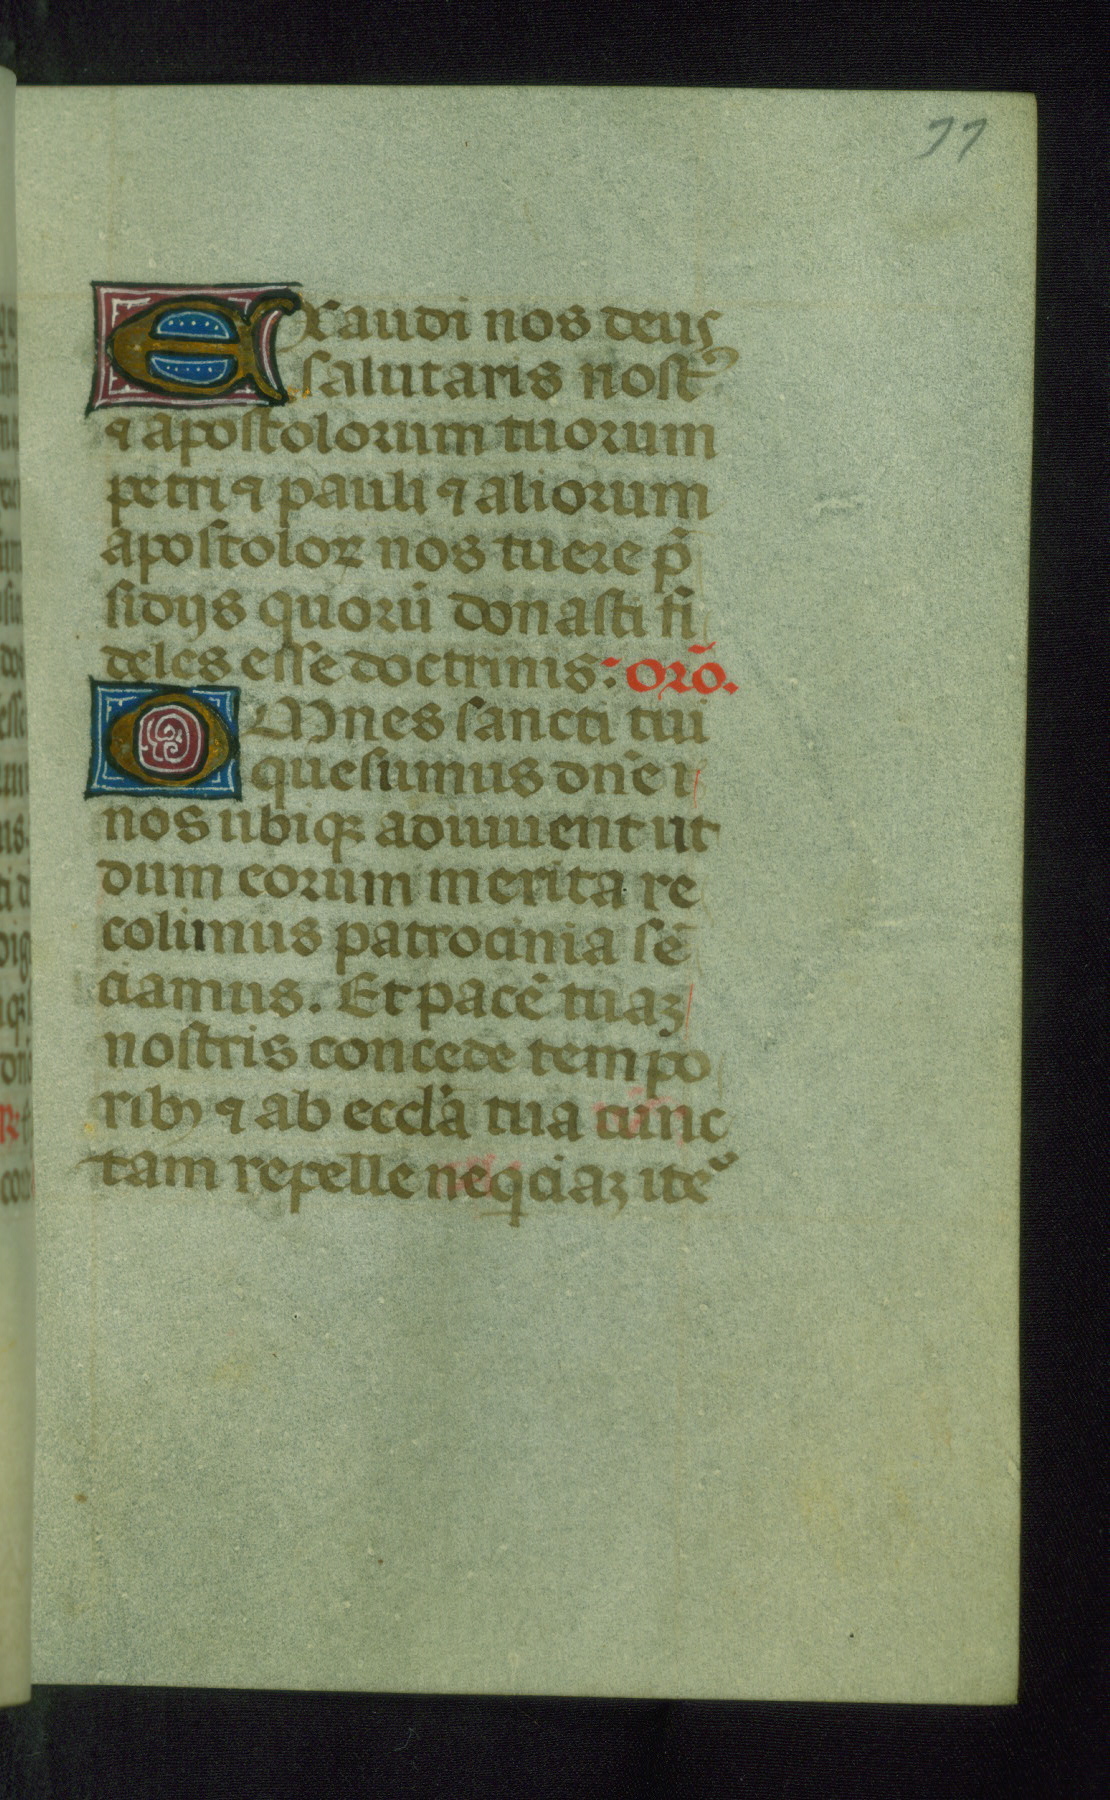 77
Exaudi nos deus
salutaris nost᷒
⁊ apostolorum tuorum
petri ⁊ pauli ⁊ aliorum
apostoloꝝ nos tuere p̄
sidijs quorū donasti fi
deles esse doctrinis: orō.
Omnes sancti tui
quesumus dn̄e
nos ubiqꝫ adiuuent ut
dum eorum merita re
colimus patrocinia sē
ciamus. Et pacē tuaꝫ
nostris concede tempo
ribꝰ ⁊ ab eccl̄a tua cunc
tam repelle neqciaꝫ ite